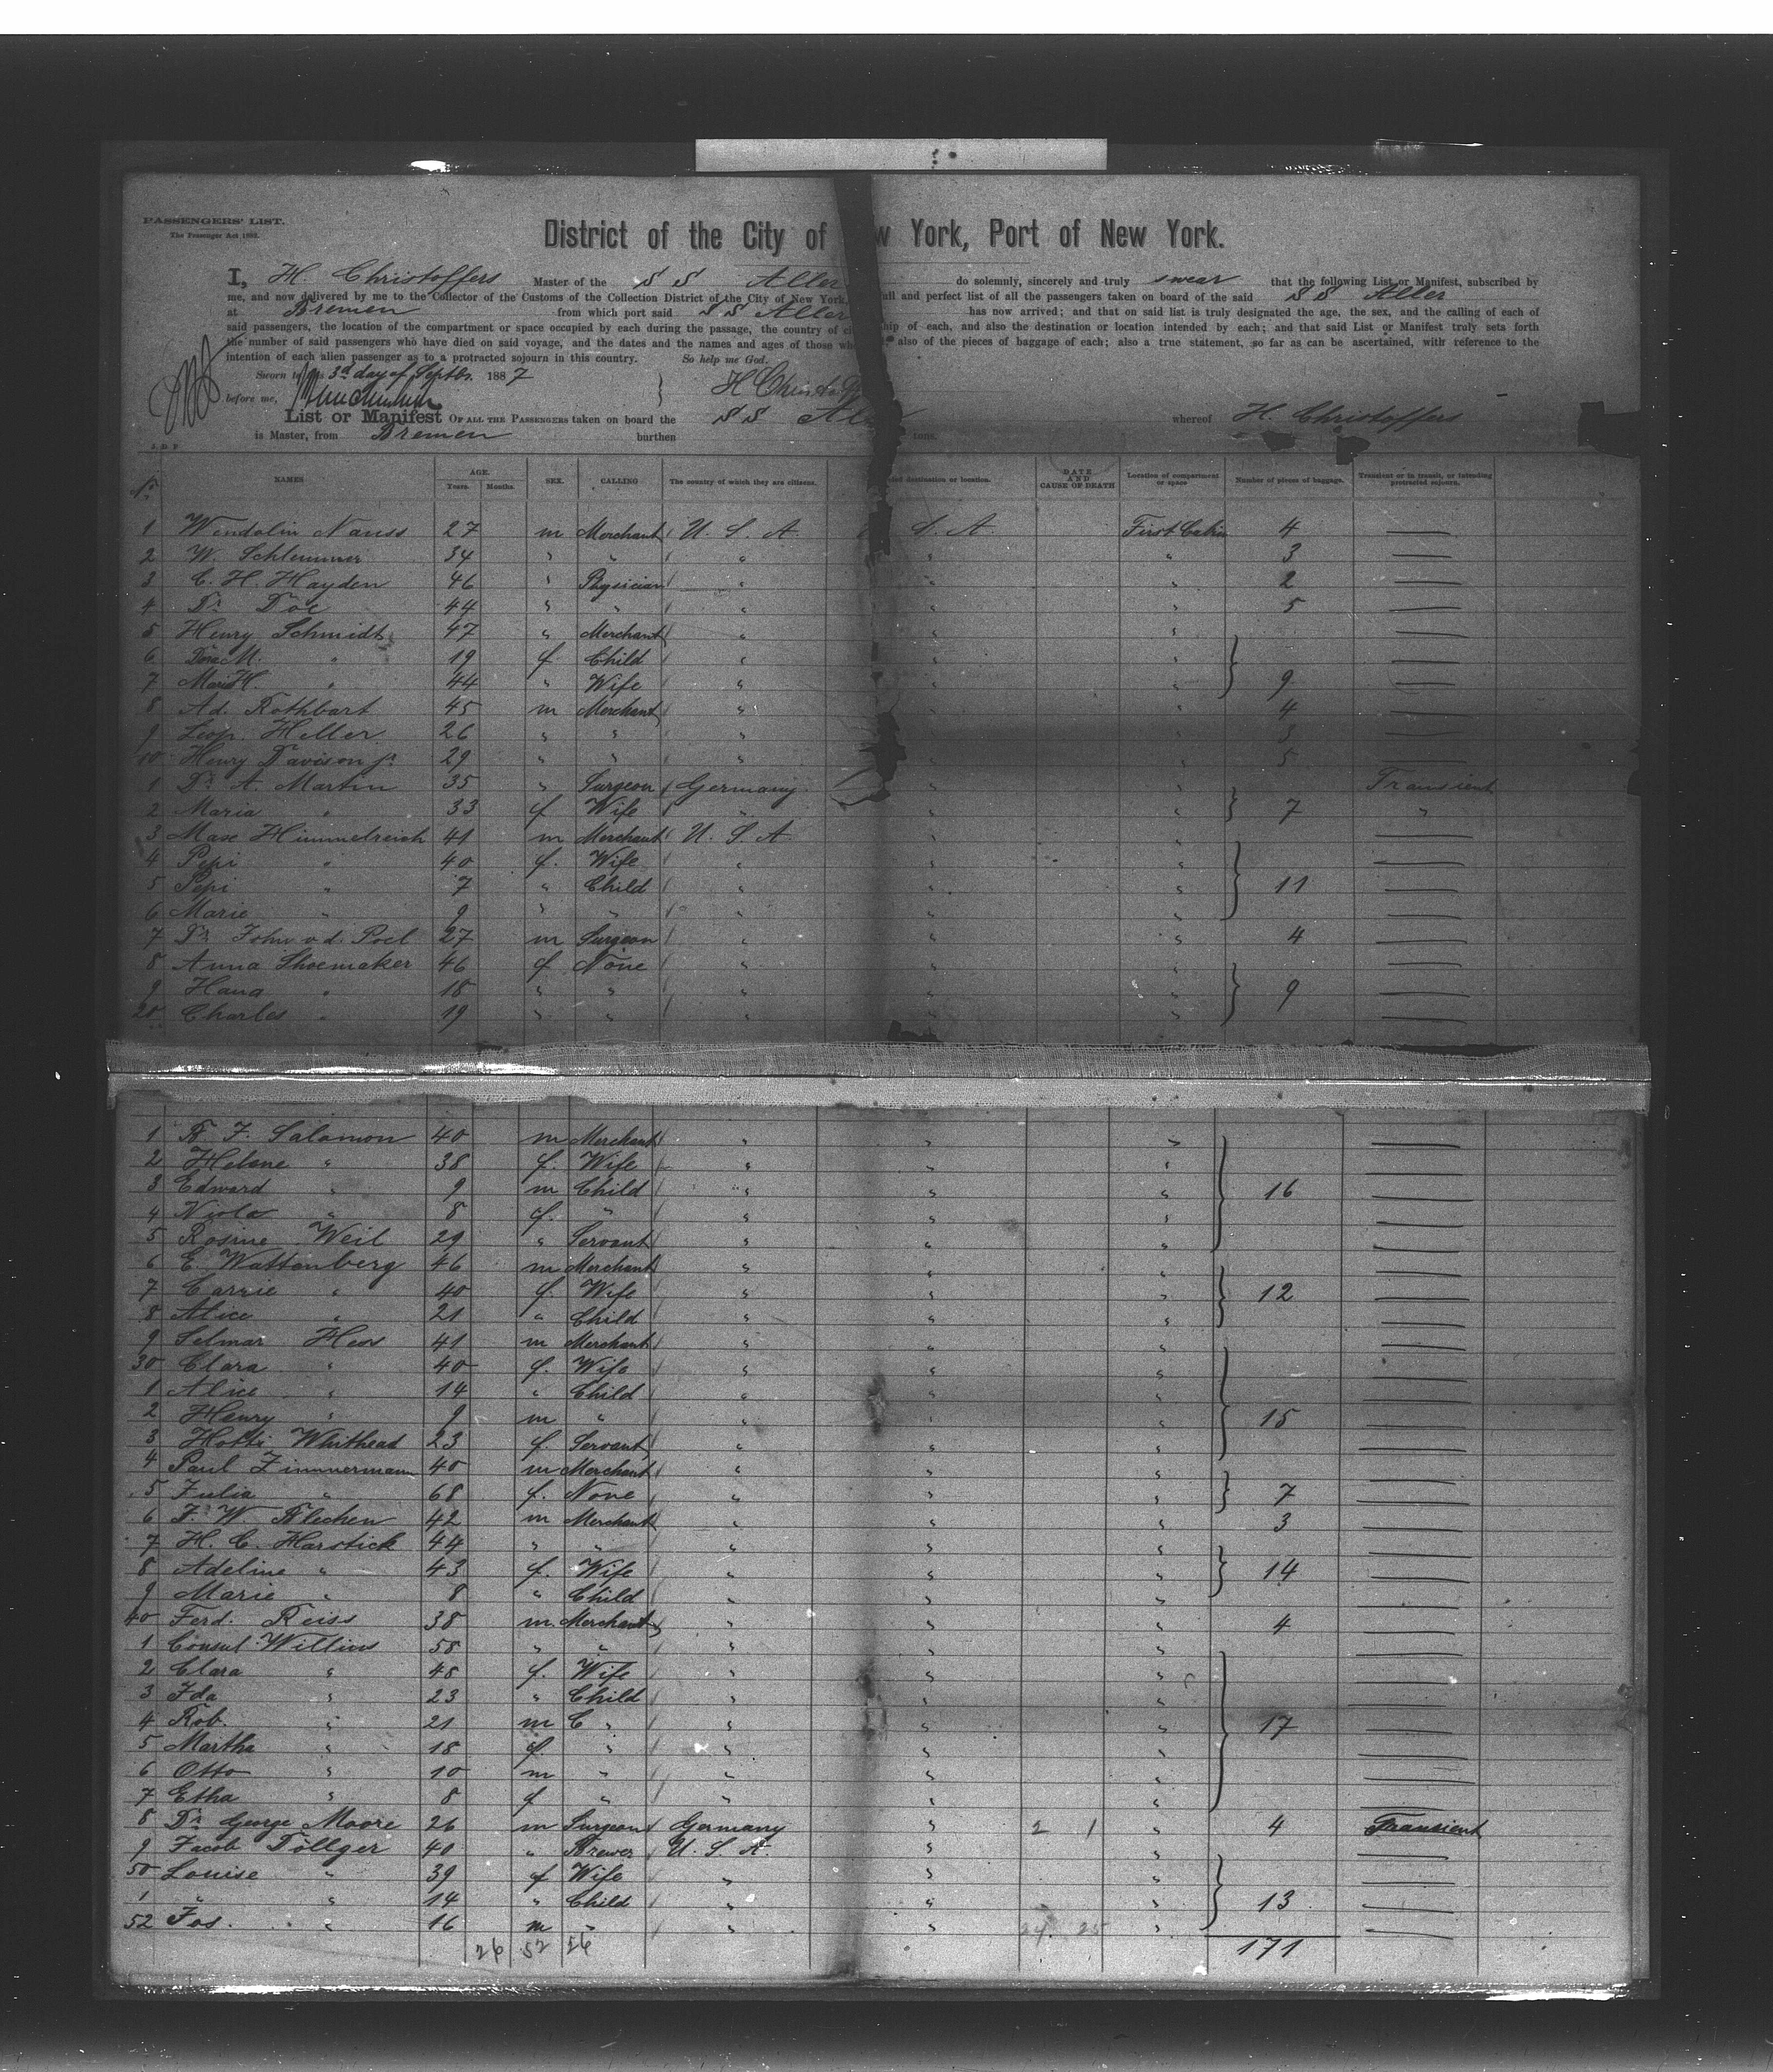 PASSENGERS' LIST.
The Passenger Act 1882.
District of the City of w York, Port of New York.
I, H. Christoffers Master of the S S Aller do solemnly, sincerely and truly swear that the following List or Manifest, subscribed by
me, and now delivered by me to the Collector of the Customs of the Collection District of the City of New York, ull and perfect list of all the passengers taken on board of the said S S Aller
at Bremen from which port said S S Aller has now arrived; and that on said list is truly designated the age, the sex, and the calling of each of
said passengers, the location of the compartment or space occupied by each during the passage, the country of ci hip of each, and also the destination or location intended by each; and that said List or Manifest truly sets forth
the number of said passengers who have died on said voyage, and the dates and the names and ages of those wh also of the pieces of baggage of each; also a true statement, so far as can be ascertained, with reference to the
intention of each alien passenger as to a protracted sojourn in this country. So help me God.
Sworn to this 3d day of Septbr. 1887
before me, H Christoff
List or Manifest OF ALL THE PASSENGERS taken on board the S S Al whereof H. Christoffers
is Master, from Bremen burthen tons.
No. NAMES AGE. Years. Months. SEX. CALLING The country of which they are citizens. destination or location. DATE AND CAUSE OF DEATH Location of compartment or space Number of pieces of baggage. Transient or in transit, or intending protracted sojourn.
1 Wendolin Nauss 27 m Merchant U. S. A. S. A. First Cabin 4 —
2 W. Schlemmer 34 " " " " " 3 —
3 C. H. Hayden 46 " Physician " " " 2 —
4 Dr. Doe 44 " " " " " 5 —
5 Henry Schmidt 47 " Merchant " " " —
6 Dora M. " 19 f Child " " " —
7 Marie H. " 44 " Wife " " " 9 —
8 Ad. Rothbart 45 m Merchant " " " 4 —
9 Leop. Heller 26 " " " " " 3 —
10 Henry Davison jr. 29 " " " " " 5 —
1 Dr. A. Martin 35 " Surgeon Germany " " Transient
2 Maria " 33 f Wife " " " 7 "
3 Max Himmelreich 41 m Merchant U. S. A. " " —
4 Pepi " 40 f. Wife " " " —
5 Pepi " 7 " Child " " " 11 —
6 Marie " 9 " " " " " —
7 Dr. John v. d. Poel 27 m Surgeon " " " 4 —
8 Anna Shoemaker 46 f None " " " —
9 Hana " 18 " " " " " 9 —
20 Charles " 19 " " " " " —
1 B. F. Salamon 40 m Merchant " " " —
2 Helene " 38 f. Wife " " " —
3 Edward " 9 m Child " " " 16 —
4 Viola " 8 f. " " " " —
5 Rosine Weil 29 " Servant " " " —
6 E. Wattenberg 46 m Merchant " " " —
7 Carrie " 40 f. Wife " " " 12 —
8 Alice " 21 " Child " " " —
9 Selmar Hess 41 m Merchant " " " —
30 Clara " 40 f. Wife " " " —
1 Alice " 14 " Child " " " —
2 Henry " 9 m " " " " 15 —
3 Hotti Whithead 23 f. Servant " " " —
4 Paul Zimmermann 40 m Merchant " " " —
5 Julia " 68 f. None " " " 7 —
6 F. W. Blechen 42 m Merchant " " " 3 —
7 H. C. Harstick 44 " " " " " —
8 Adeline " 43 f. Wife " " " 14 —
9 Marie " 8 " Child " " " —
40 Ferd. Reiss 38 m. Merchant " " " 4 —
1 Consul Willius 58 " " " " " —
2 Clara " 48 f. Wife " " " —
3 Ida " 23 " Child " " " —
4 Rob. " 21 m C " " " " 17 —
5 Martha " 18 f " " " " —
6 Otto " 10 m " " " " —
7 Etha " 8 f " " " " —
8 Dr. George Moore 26 m Surgeon Germany " 2 1 " 4 Transient
9 Jacob Töllger 40 " Brewer U. S. A. " " —
50 Louise " 39 f Wife " " " —
1 " " 14 " Child " " " 13 —
52 Jos. " 16 m " " " 24. 25 " —
26 52 26 171